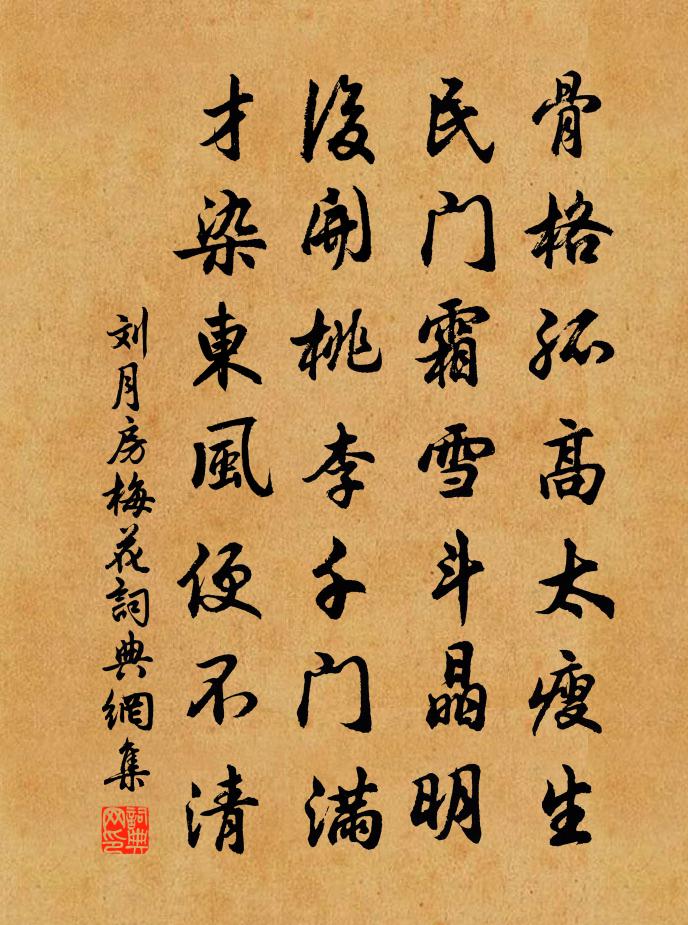 骨格孤高太瘦生
民門霜雪斗晶明
後開桃李千門滿
才染東風便不清
刘月房梅花詞典網集
詞典网印